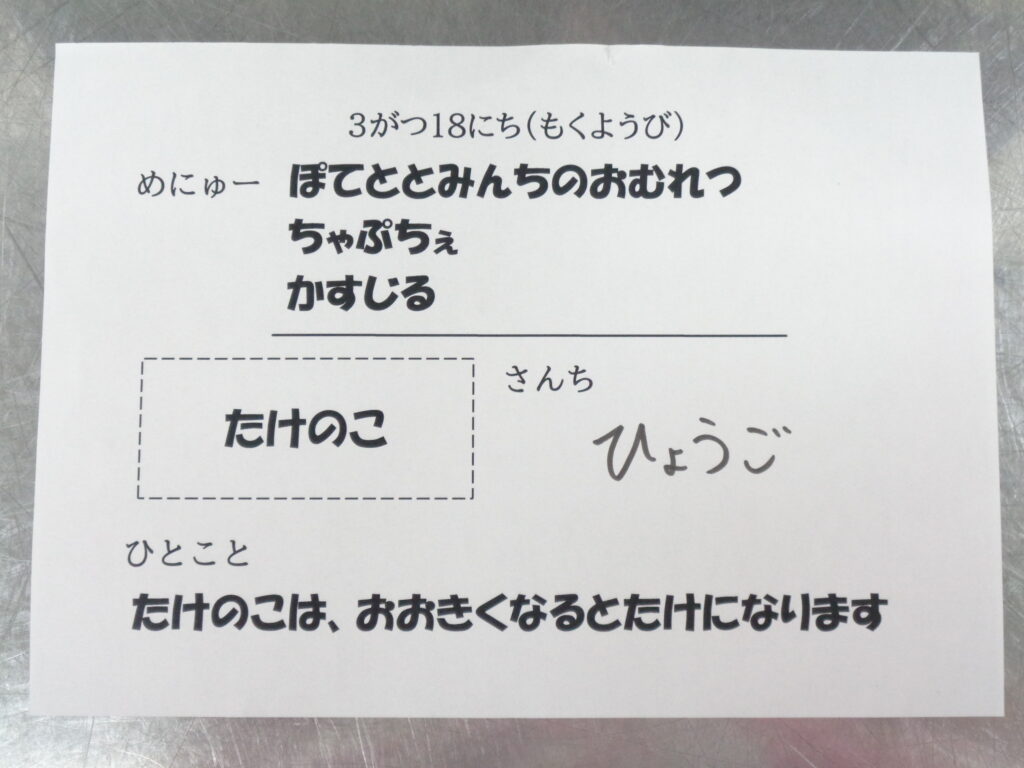 3がつ18にち(もくようび)
めにゅー ぽてととみんちのおむれつ
ちゃぷちぇ
かすじる
たけのこ
さんち
ひょうご
ひとこと
たけのこは、おおきくなるとたけになります